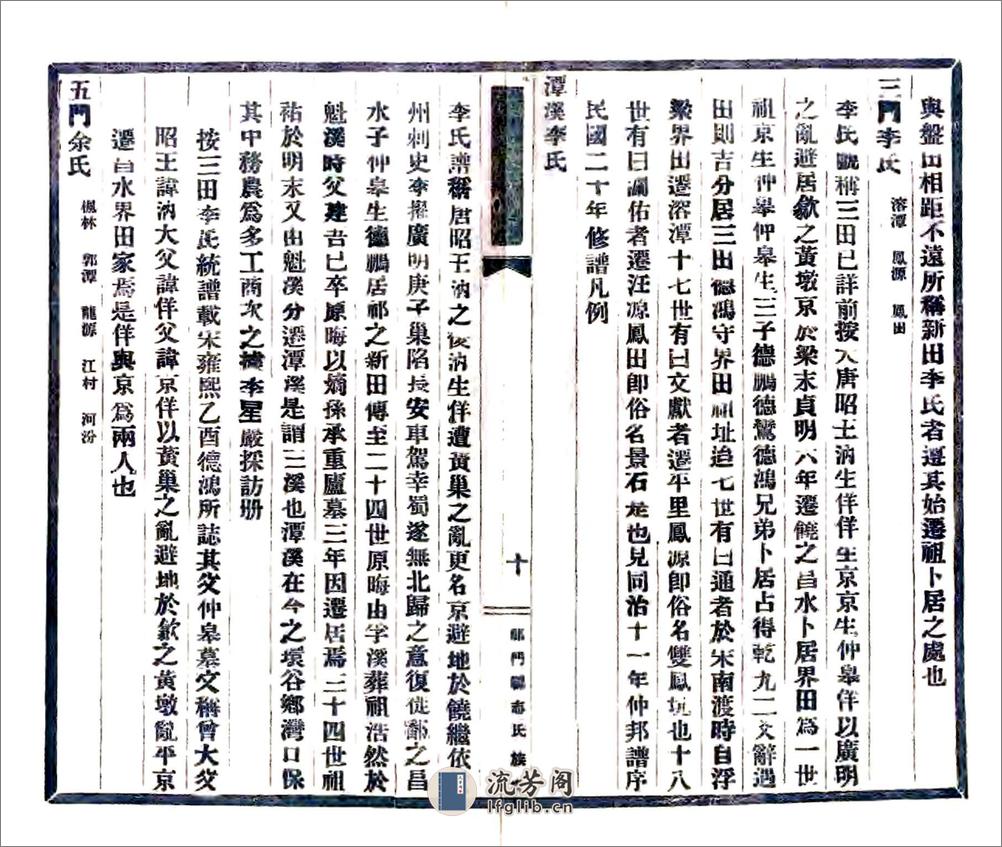 與盤田相距不遠所稱新田李氏者遵其始遷祖卜居之處也
三門李氏 溶潭 鳳源 鳳田
李氏號稱三田已詳前按大唐昭王汭生佯佯生京京生仲皋佯以廣明
之亂避居歙之黃墩京於梁末貞明六年遷饒之昌水卜居界田爲一世
祖京生仲皋仲皋生三子德鵬德鸞德鴻兄弟卜居占得乾九二爻辭遇
田則吉分居三田德鴻守界田祖址迨七世有曰通者於宋南渡時自浮
梁界田遷溶潭十七世有曰文獻者遷平里鳳源卽俗名雙鳳坑也十八
世有曰瀾佑者遷汪源鳳田卽俗名景石是也見同治十一年仲邦譜序
民國二十年修譜凡例
潭溪李氏
十
祁門縣志氏族
李氏譜稱唐昭王汭之後汭生佯遭黃巢之亂更名京避地於饒繼依
州刺史李擢廣明庚子巢陷長安車駕幸蜀遂無北歸之意復徙鄱之昌
水子仲皋生德鵬居祁之新田傳至二十四世原晦由孚溪葬祖浩然於
魁溪時父建吾已卒原晦以嫡孫承重廬墓三年因遷居焉三十四世祖
祐於明末又由魁溪分遷潭溪是謂三溪也潭溪在今之環谷鄉灣口保
其中務農爲多工商次之據李星嚴採訪册
按三田李氏統譜載宋雍熙乙酉德鴻所誌其父仲皋墓文稱曾大父
昭王諱汭大父諱佯父諱京佯以黃巢之亂避地於歙之黃墩亂平京
遷昌水界田家焉是佯與京爲兩人也
五門余氏 楓林 郭潭 龍源 江村 河汾
流芳阁
lfglib.cn